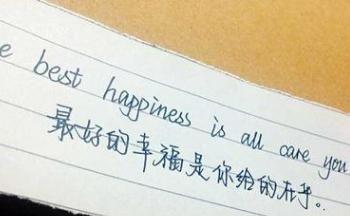 e best happiness is all care you
最好的幸福是你给的在乎。